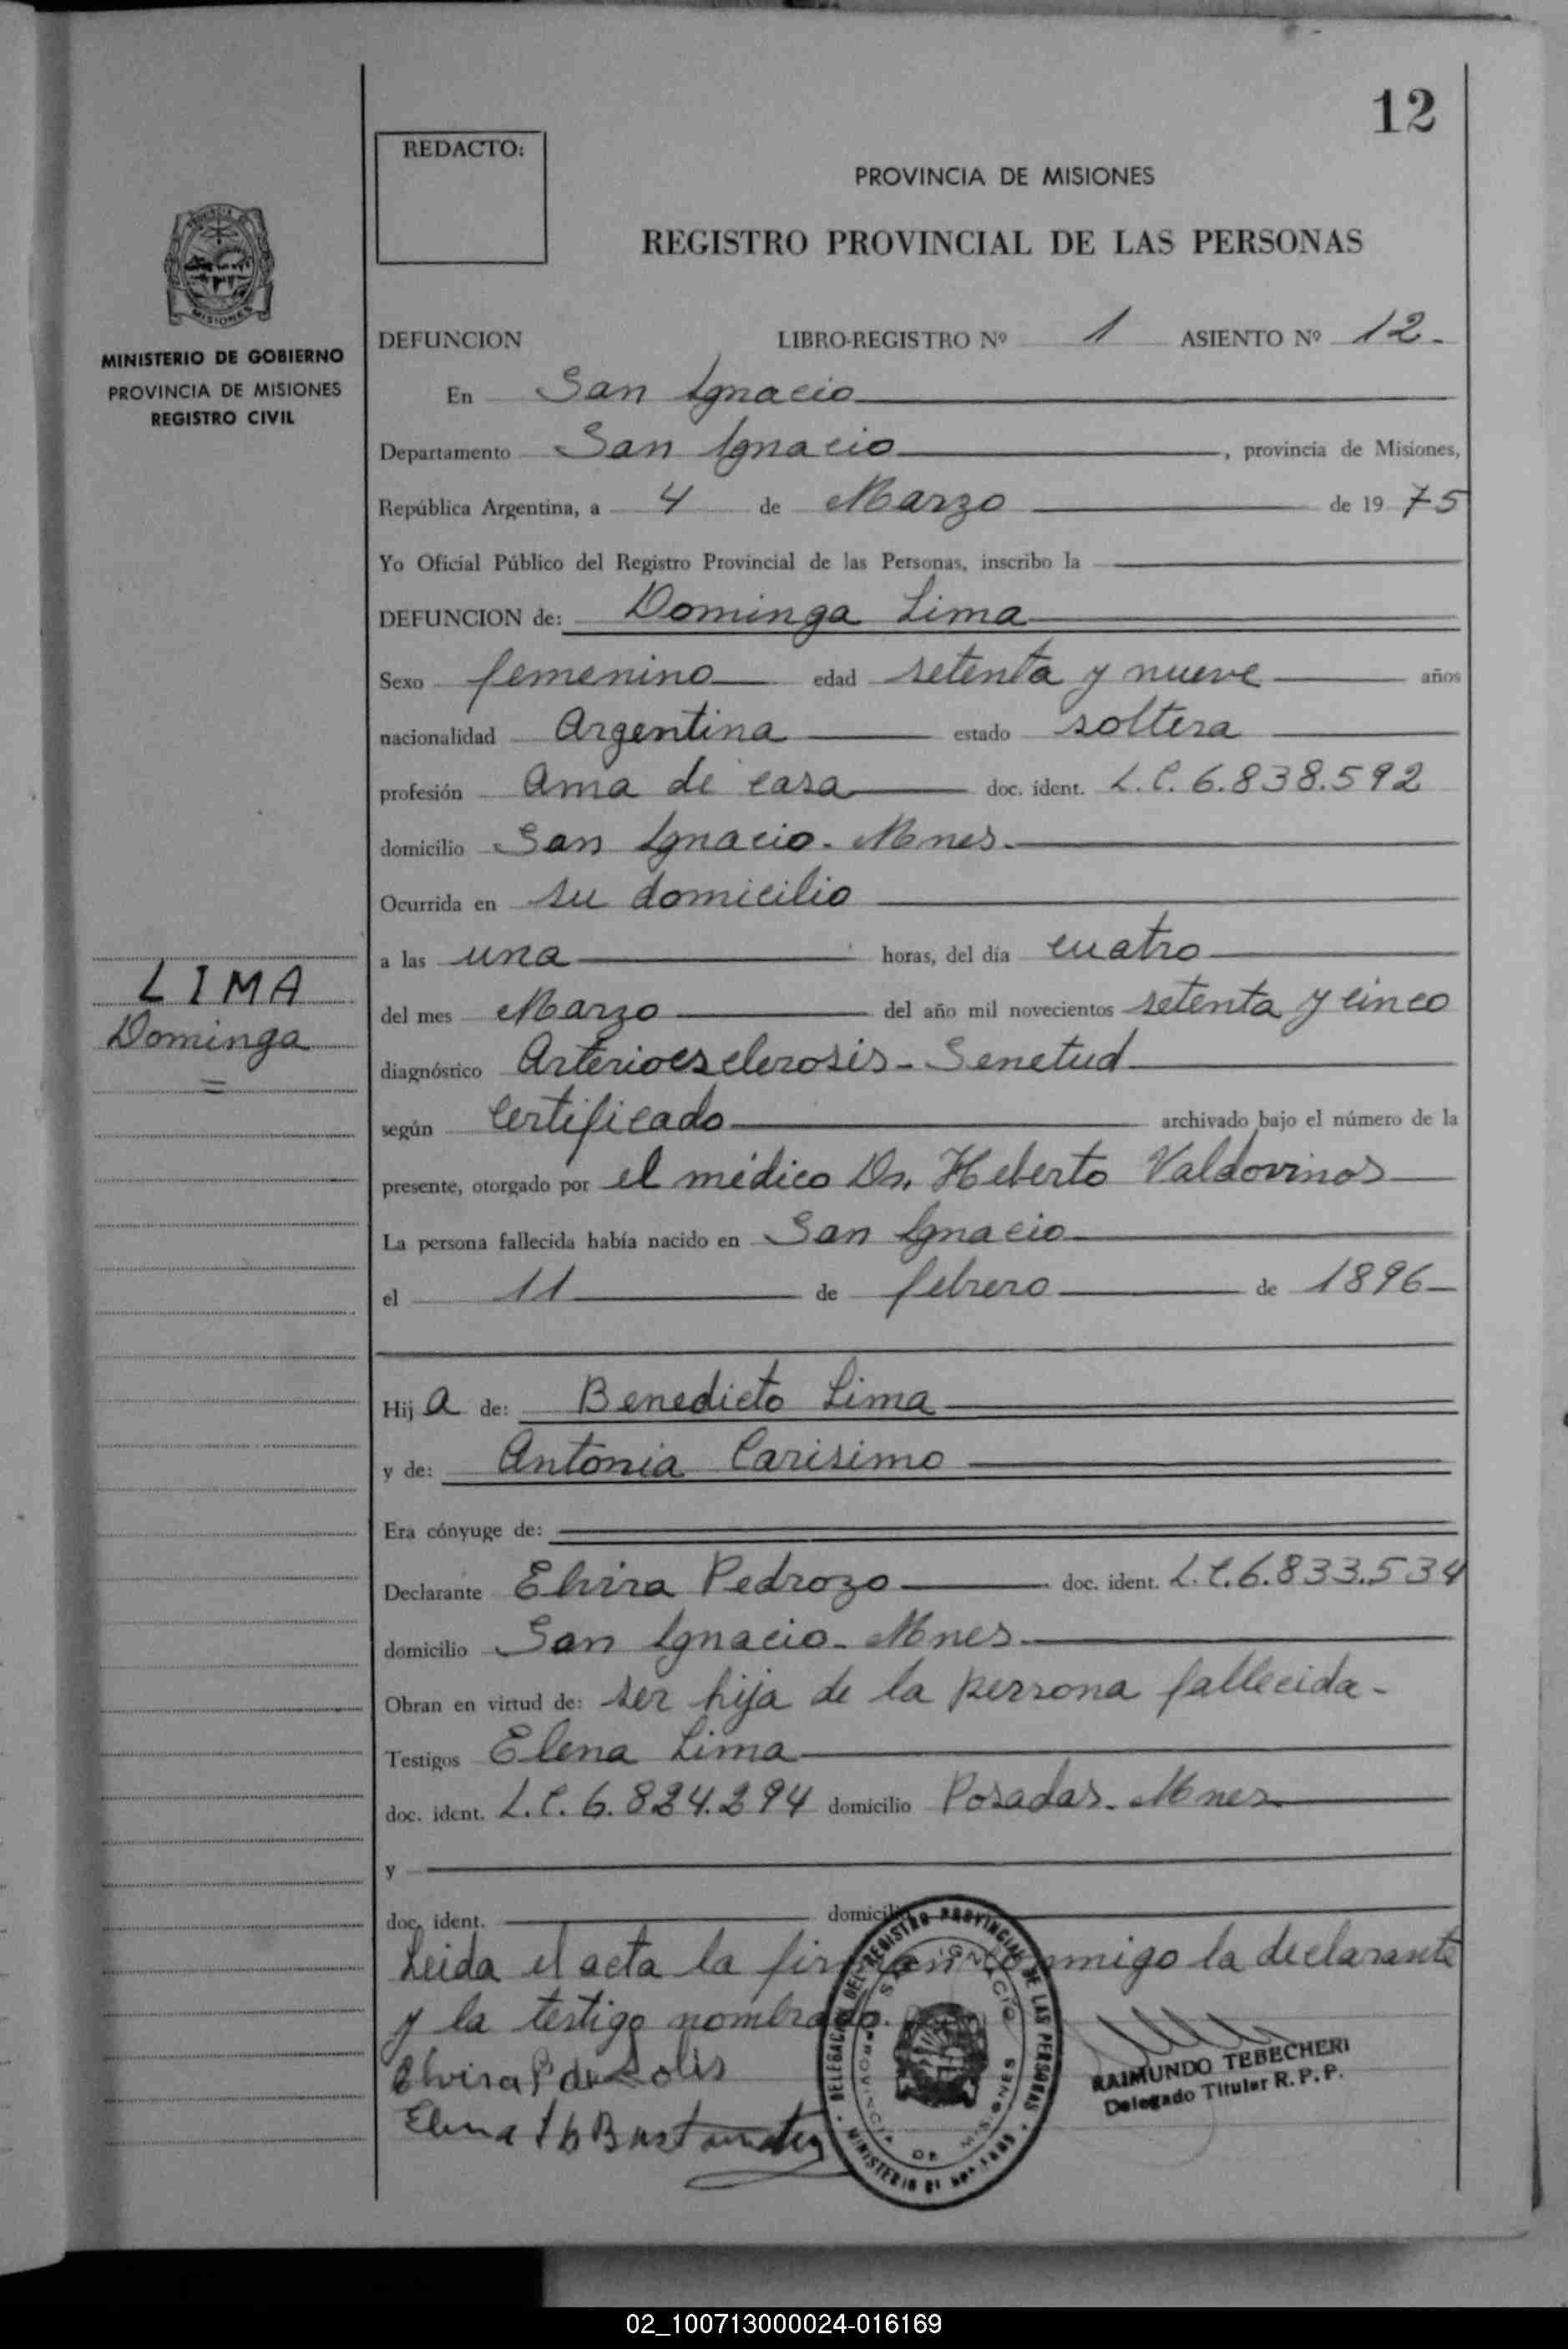 12
REDACTO:
PROVINCIA DE MISIONES
REGISTRO PROVINCIAL DE LAS PERSONAS
MISIONES
MINISTERIO DE GOBIERNO
PROVINCIA DE MISIONES
REGISTRO CIVIL
DEFUNCION LIBRO-REGISTRO Nº 1 ASIENTO Nº 12.
En San Ignacio
Departamento San Ignacio, provincia de Misiones,
República Argentina, a 4 de Marzo de 1975
Yo Oficial Público del Registro Provincial de las Personas, inscribo la
DEFUNCION de: Dominga Lima
Sexo femenino edad setenta y nueve años
nacionalidad Argentina estado soltera
profesión Ama de casa doc. ident. L.C. 6.838.592
domicilio San Ignacio. Mnes.
Ocurrida en su domicilio
a las una horas, del día cuatro
del mes Marzo del año mil novecientos setenta y cinco
LIMA
Dominga
diagnóstico Arterioesclerosis - Senetud
según Certificado archivado bajo el número de la
presente, otorgado por el médico Dr. Heberto Valdovinos
La persona fallecida había nacido en San Ignacio
el 11 de febrero de 1896
Hija de: Benedicto Lima
y de: Antonia Carisimo
Era cónyuge de:
Declarante Elvira Pedrozo doc. ident. L.C. 6.833.534
domicilio San Ignacio - Mnes.
Obran en virtud de: ser hija de la persona fallecida -
Testigos Elena Lima
doc. ident. L.C. 6.824.294 domicilio Posadas. Mnes
y
doc. ident. domicilio
Leida el acta la firman conmigo la declarante
y la testigo nombrada.
Elvira P de Solis
Elena
DELEGACION DEL REGISTRO PROVINCIAL DE LAS PERSONAS
SAN IGNACIO
PROVINCIA DE MISIONES
RAIMUNDO TEBECHERI
Delegado Titular R. P. P.
02_100713000024-016169